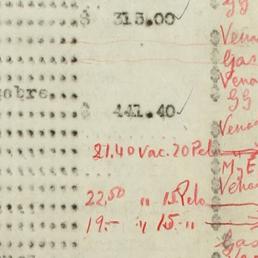 $ 313.00
Vena
Gas
Vena
obre
$ 441.40
Vena
21.40 Vac. 20 Pel
M. E
Vena
22,50 " 15 Pelo
19.- " 15 "
Gas